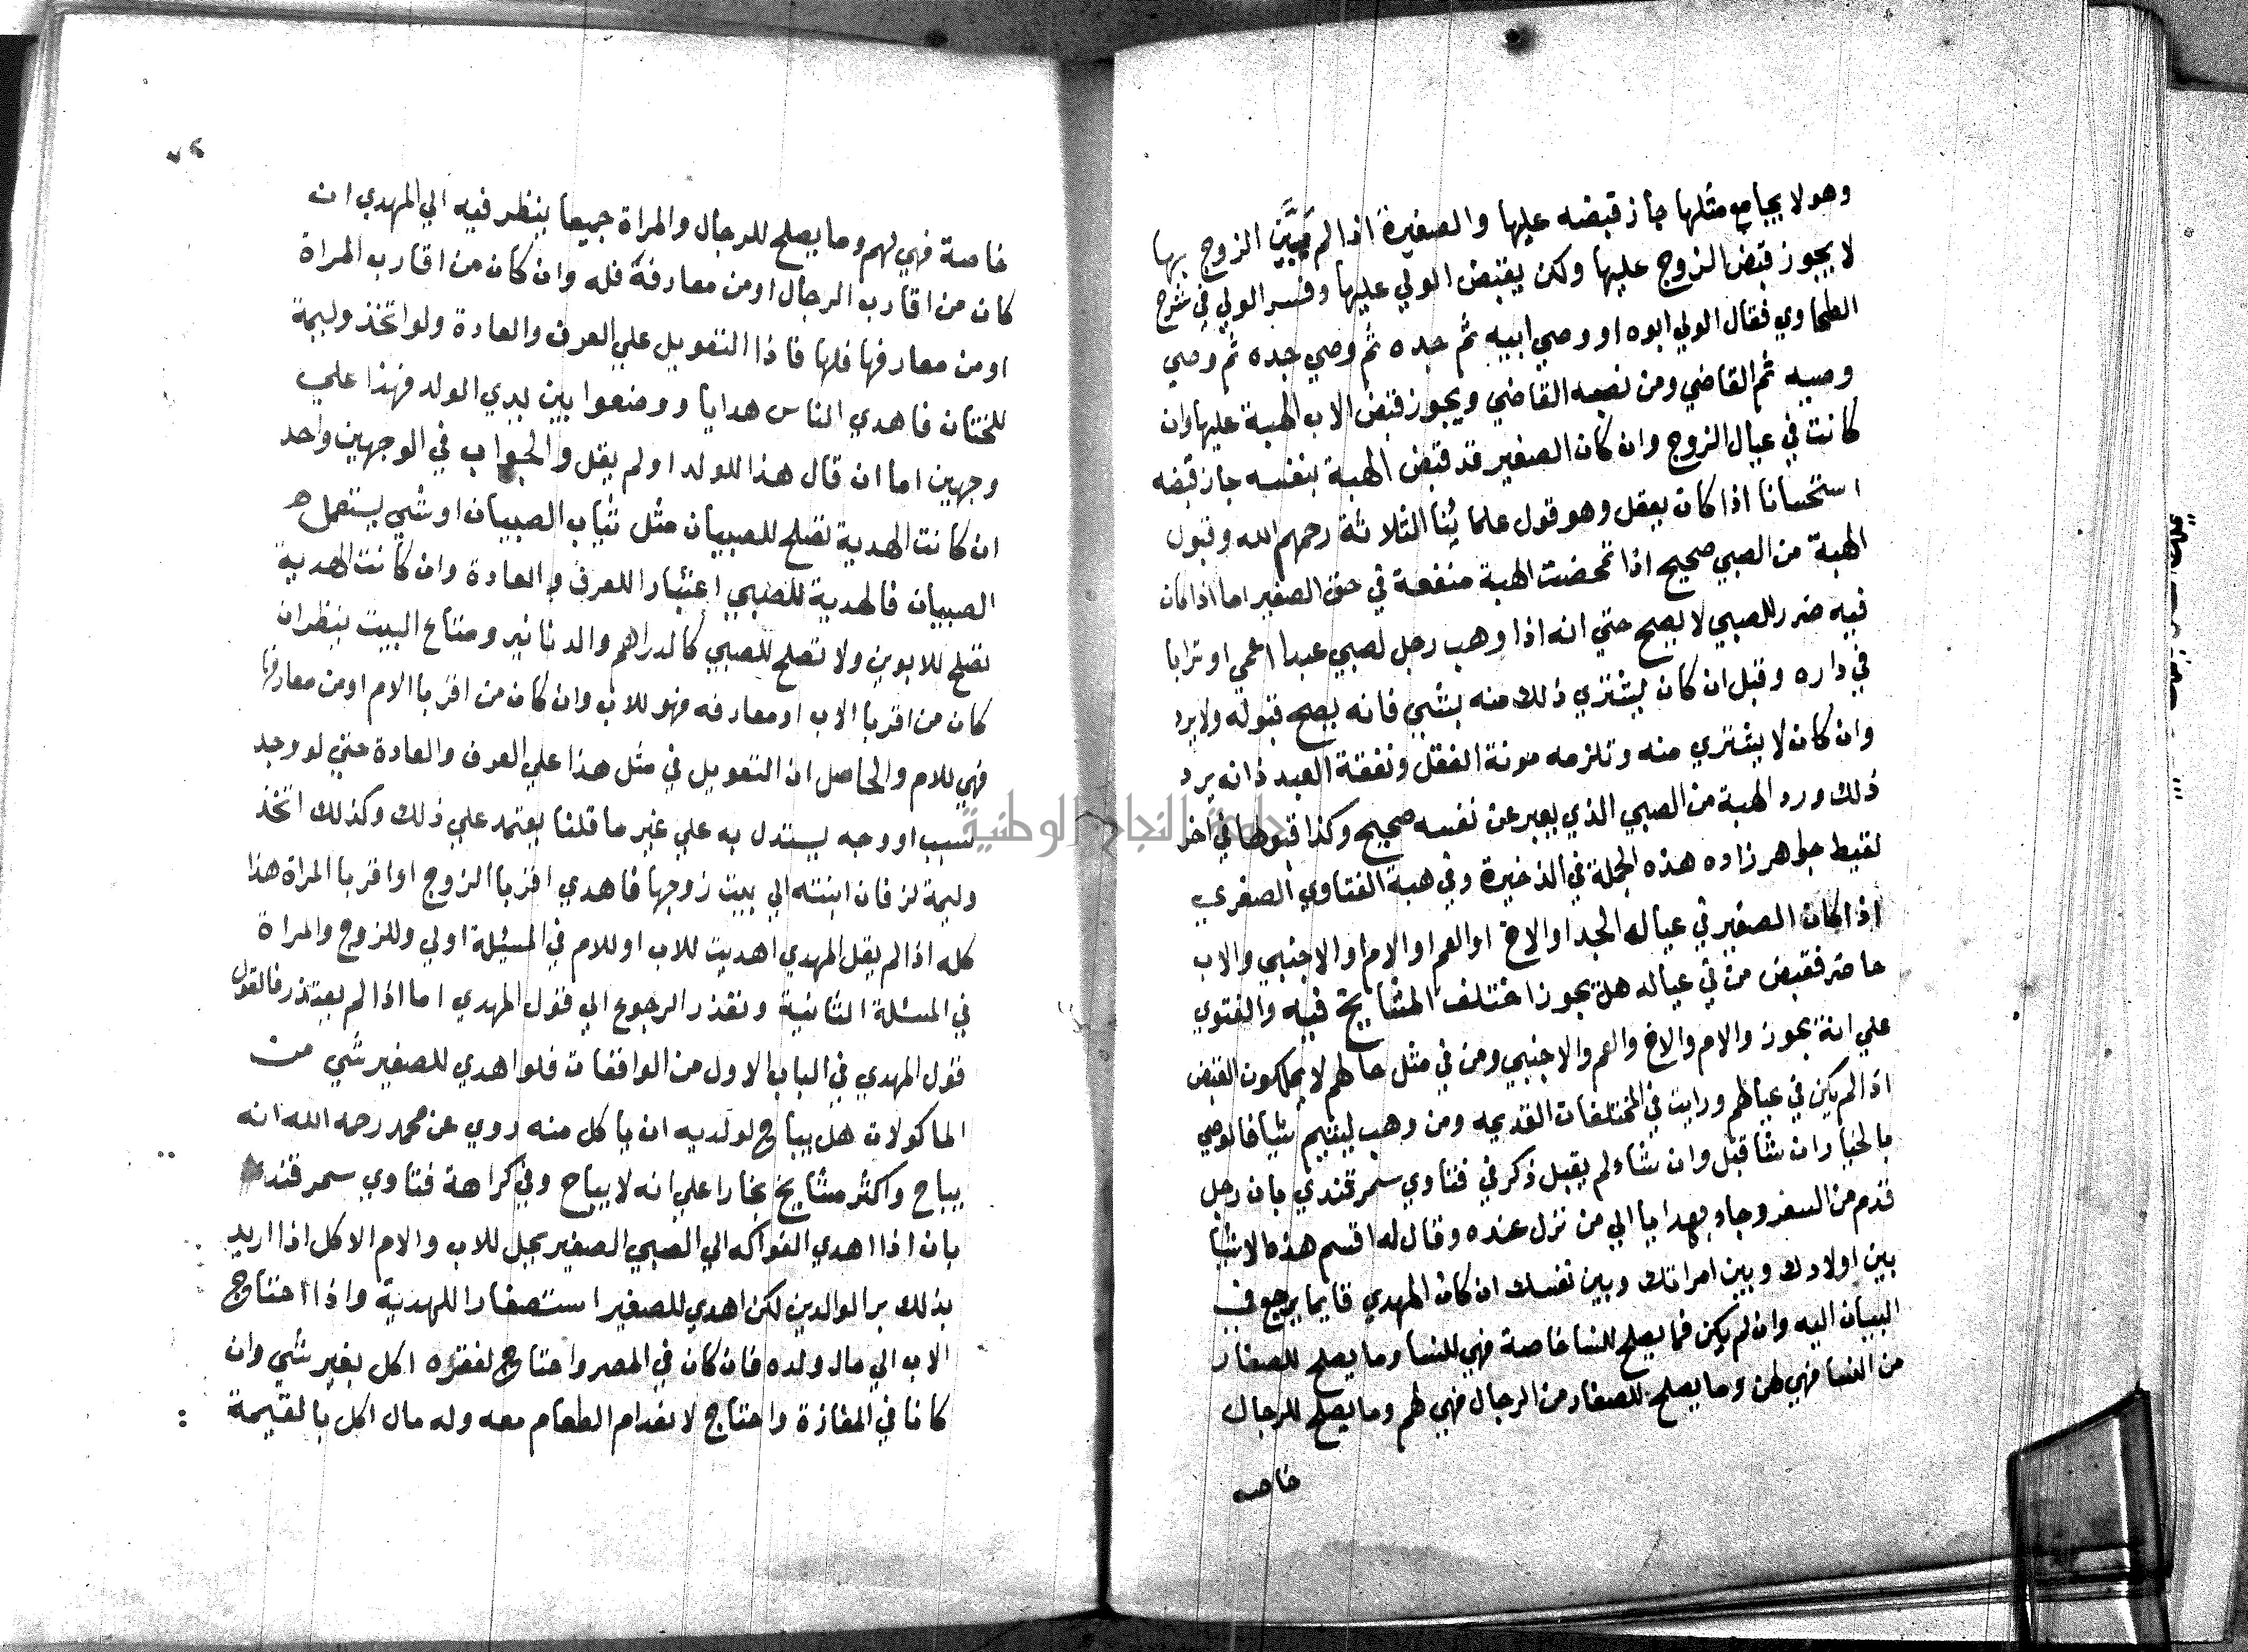 وهو لا يجامع مثلها جاز قبضه عليها والصغيرة اذا لم يبين الزوج بها
لا يجوز قبض الزوج عليها ولكن يقبض الولي عليها وفسر الولي في شرح
الطحاوي فقال الولي ابوه او وصي ابيه ثم جده ثم وصي جده ثم وصي
وصيه ثم القاضي ومن نصبه القاضي ويجوز قبض الاب الهبة عليها وان
كانت في عيال الزوج وان كان الصغير قد قبض الهبة بنفسه جاز قبضه
استحسانا اذا كان يعقل وهو قول علمائنا الثلاثة رحمهم الله وقبول
الهبة من الصبي صحيح اذا تمحضت الهبة منفعة في حق الصغير اما اذا كان
فيه ضرر للصبي لا يصح حتي انه اذا وهب رجل لصبي عبدا اعمي او ترابا
في داره وقيل ان كان يشتري ذلك منه بشي فانه يصح قبوله ولا يرد
وان كان لا يشتري منه وتلزمه مونة النقل ونفقة العبد فانه يرد
ذلك ورد الهبة من الصبي الذي يعبر عن نفسه صحيح وكذا قبولها في اخر
لقيط جواهر زاده هذه الجملة في الذخيرة وفي هبة الفتاوي الصغري
اذا كان الصغير في عيال الجد او الاخ او العم او الام او الاجنبي والاب
حاضر فقبض من في عياله هل يجوز اختلف المشايخ فيه والفتوي
علي انه يجوز والام والاخ والعم والاجنبي ومن في مثل حالهم لا يملكون القبض
اذا لم يكن في عيالهم ورايت في المختلفات القديمه ومن وهب ليتيم شيا فالوصي
بالخيار ان شا قبل وان شاء لم يقبل ذكر في فتاوي سمرقندي بان رجل
قدم من السفر وجاء بهدايا الي من نزل عنده وقال له اقسم هذه الاشيا
بين اولادك وبين امراتك وبين نفسك ان كان المهدي قايما يرجع في
البيان اليه وان لم يكن فما يصلح للنسا خاصة فهي للنسا وما يصلح للصغار
من النسا فهي لهن وما يصلح للصغار من الرجال فهي لهم وما يصلح للرجال
خاصه
خاصة فهي لهم وما يصلح للرجال والمراة جميعا ينظر فيه الي المهدي ان
كان من اقارب الرجال او من معارفه فله وان كان من اقارب المراة
او من معارفها فلها فاذا التعويل علي العرف والعادة ولو اتخذ وليمة
للختان فاهدي الناس هدايا ووضعوا بين يدي الولد فهذا علي
وجهين اما ان قال هذا للولد او لم يقل والجواب في الوجهين واحد
ان كانت الهدية تصلح للصبيان مثل ثياب الصبيان او شي يستعمله
الصبيان فالهدية للصبي اعتبارا للعرف والعادة وان كانت الهدية
تصلح للابوين ولا تصلح للصبي كالدراهم والدنانير ومتاع البيت ينظر ان
كان من اقربا الاب او معارفه فهو للاب وان كان من اقربا الام او من معارفها
فهي للام والحاصل ان التعويل في مثل هذا علي العرف والعادة حتي لو وجد
سبب او وجه يستدل به علي غير ما قلنا يعتمد علي ذلك وكذلك اتخذ
وليمة لزفاف ابنته الي بيت زوجها فاهدي اقربا الزوج او اقربا المراة هذا
كله اذا لم يقل المهدي اهديت للاب او للام في المسئلة اولي وللزوج والمراة
في المسئلة الثانية وتعذر الرجوع الي قول المهدي اما اذا لم يعتذر فالقول
قول المهدي في الباب الاول من الواقعات فلو اهدي للصغير شي من
الماكولات هل يباح لولديه ان ياكل منه روي عن محمد رحمه الله انه
يباح واكثر مشايخ بخارا علي انه لا يباح وفي كراهة فتاوي سمرقندي
بان اذا اهدي الفواكه الي الصبي الصغير يحل للاب والام الاكل اذا اريد
بذلك بر الوالدين لكن اهدي للصغير استصغارا للهدية واذا احتاج
الاب الي مال ولده فان كان في المصر واحتاج لفقره اكل بغير شي وان
كانا في المفازة واحتاج لانعدام الطعام معه وله مال اكل بالقيمة
جامعة النجاح الوطنية